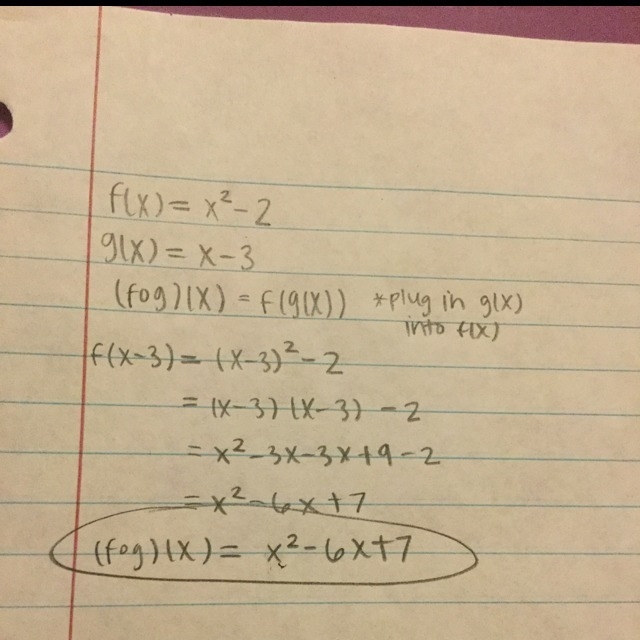 f(x) = x² - 2
g(x) = x - 3
(fog)(x) = f(g(x)) *plug in g(x)
into f(x)
f(x-3) = (x-3)² - 2
= (x-3)(x-3) - 2
= x² - 3x - 3x + 9 - 2
= x² - 6x + 7
(fog)(x) = x² - 6x + 7